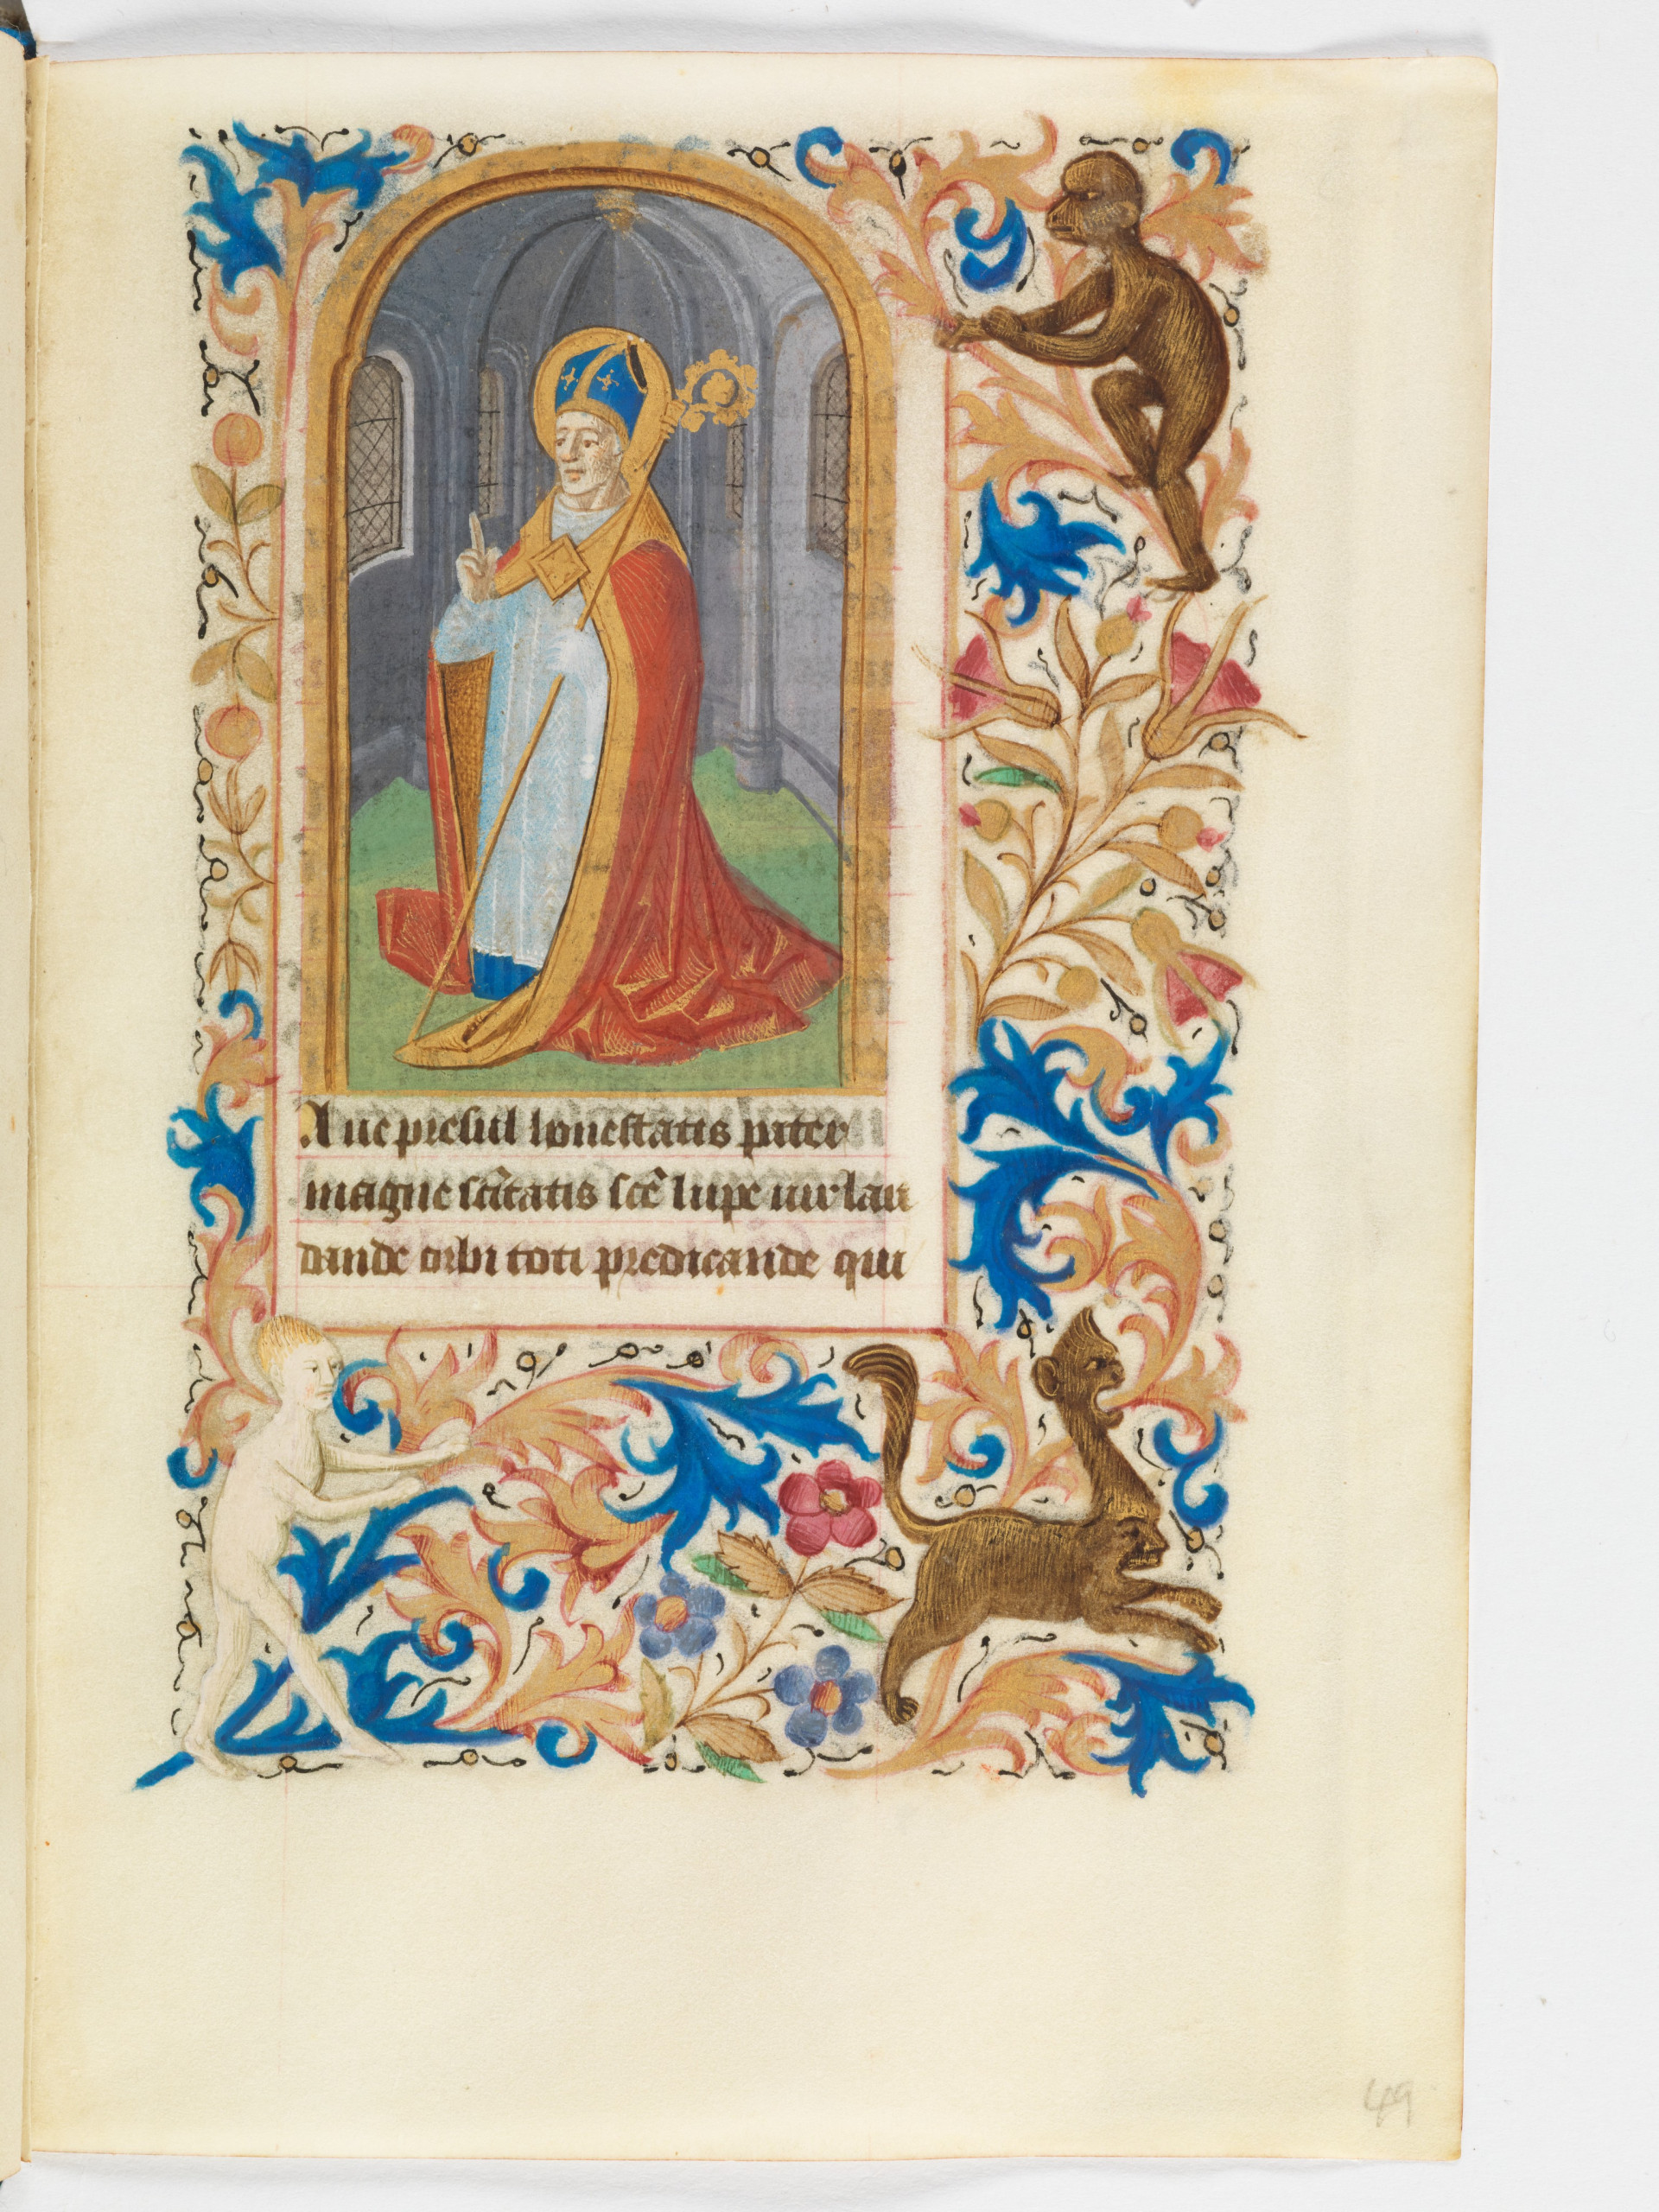 Aue presul honestatis pater
magne sc̃itatis scẽ lupe uir lau
dande orbi toti predicande qui
49